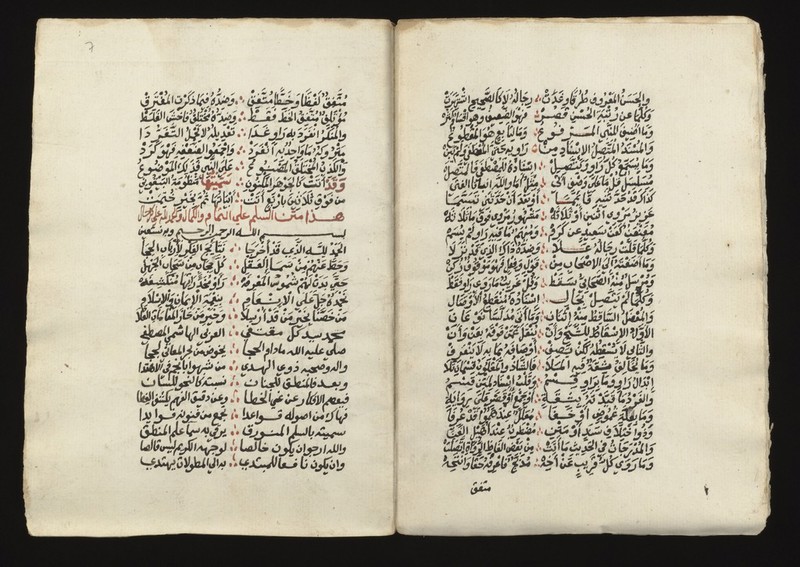 والحسن المعروف طرقا وغدت رجاله لا كالصحيح اشتهرت
وكلما عن رتبة الحسن قصر فهو الضعيف وهو اقساما كثر
وما اضيف للنبي المرفوع وما لتابع هو المقطوع
والمسند المتصل الاسناد من راويه حتى المصطفى ولم يبن
وما بسمع كل راو يتصل اسناده للمصطفى فالمتصل
مسلسل قل ما على وصف اتى مثل اما والله انباني الفتى
كذاك قد حدثنيه قائما او بعد ان حدثني تبسما
عزيز مروي اثنين او ثلاثه مشهور مروي فوق ما ثلاثه
معنعن كعن سعيد عن كرم ومبهم ما فيه راو لم يسم
وكلما قلت رجاله علا وضده ذاك الذي قد نزلا
وما اضفته الى الاصحاب من قول وفعل فهو موقوف زكن
ومرسل منه الصحابي سقط وقل غريب ما روى راو فقط
وكلما لم يتصل بحال اسناده منقطع الاوصال
والمعضل الساقط منه اثنان وما اتى مدلسا نوعان
الاول الاسقاط للشيخ وان ينقل عمن فوقه بعن وان
والثاني لا يسقطه لكن يصف اوصافه بما به لا ينعرف
وما يخالف ثقة فيه الملا فالشاذ والمقلوب قسمان تلا
ابدال راو ما براو قسم وقلب اسناد لمتن قسم
والفرد ما قيدته بثقة او جمع او قصر على رواية
وما بعلة غموض او خفا معلل عندهم قد عرفا
وذو اختلاف سند او متن مضطرب عند اهيل الفن
والمدرجات في الحديث ما اتت من بعض الفاظ الرواة اتصلت
وما روى كل قرين عن اخه مدبج فاعرفه حقا وانتخه
متفق
متفق لفظا وخطا متفق وضده فيما ذكرت المفترق
مؤتلف متفق الخط فقط وضده مختلف فاخش الغلط
والمنكر انفرد به راو غدا تعديله لا يحمل التفردا
متروكه ما واحد به انفرد واجمعوا لضعفه فهو كرد
والكذب المختلق المصنوع على النبي فذلك الموضوع
وقد اتت كالجوهر المكنون سميتها منظومة البيقوني
من فوق ثلاثين باربع اتت ابياتها ثم بخير ختمت
هذا متن السلم على التمام والكمال
بسم الله الرحمن الرحيم وبه نستعين
الحمد لله الذي قد اخرجا نتائج الفكر لارباب الحجا
وحط عنهم من سما العقل كل حجاب من سحاب الجهل
حتى بدت لهم شموس المعرفه راوا مخدراتها منكشفه
نحمده جل على الانعام بنعمة الايمان والاسلام
من خصنا بخير من قد ارسلا وخير من حاز المقامات العلا
محمد سيد كل مقتفى العربي الهاشمي المصطفى
صلى عليه الله ما دام الحجا يخوض من بحر المعاني لججا
واله وصحبه ذوي الهدى من شبهوا بانجم في الاهتدا
وبعد فالمنطق للجنان نسبته كالنحو للسان
فيعصم الافكار عن غي الخطا وعن دقيق الفهم يكشف الغطا
فهاك من اصوله قواعدا تجمع من فنونه فوايدا
سميته بالسلم المنورق يرقى به سما علم المنطق
والله ارجو ان يكون خالصا لوجهه الكريم ليس قالصا
وان يكون نافعا للمبتدي به الى المطولات يهتدي